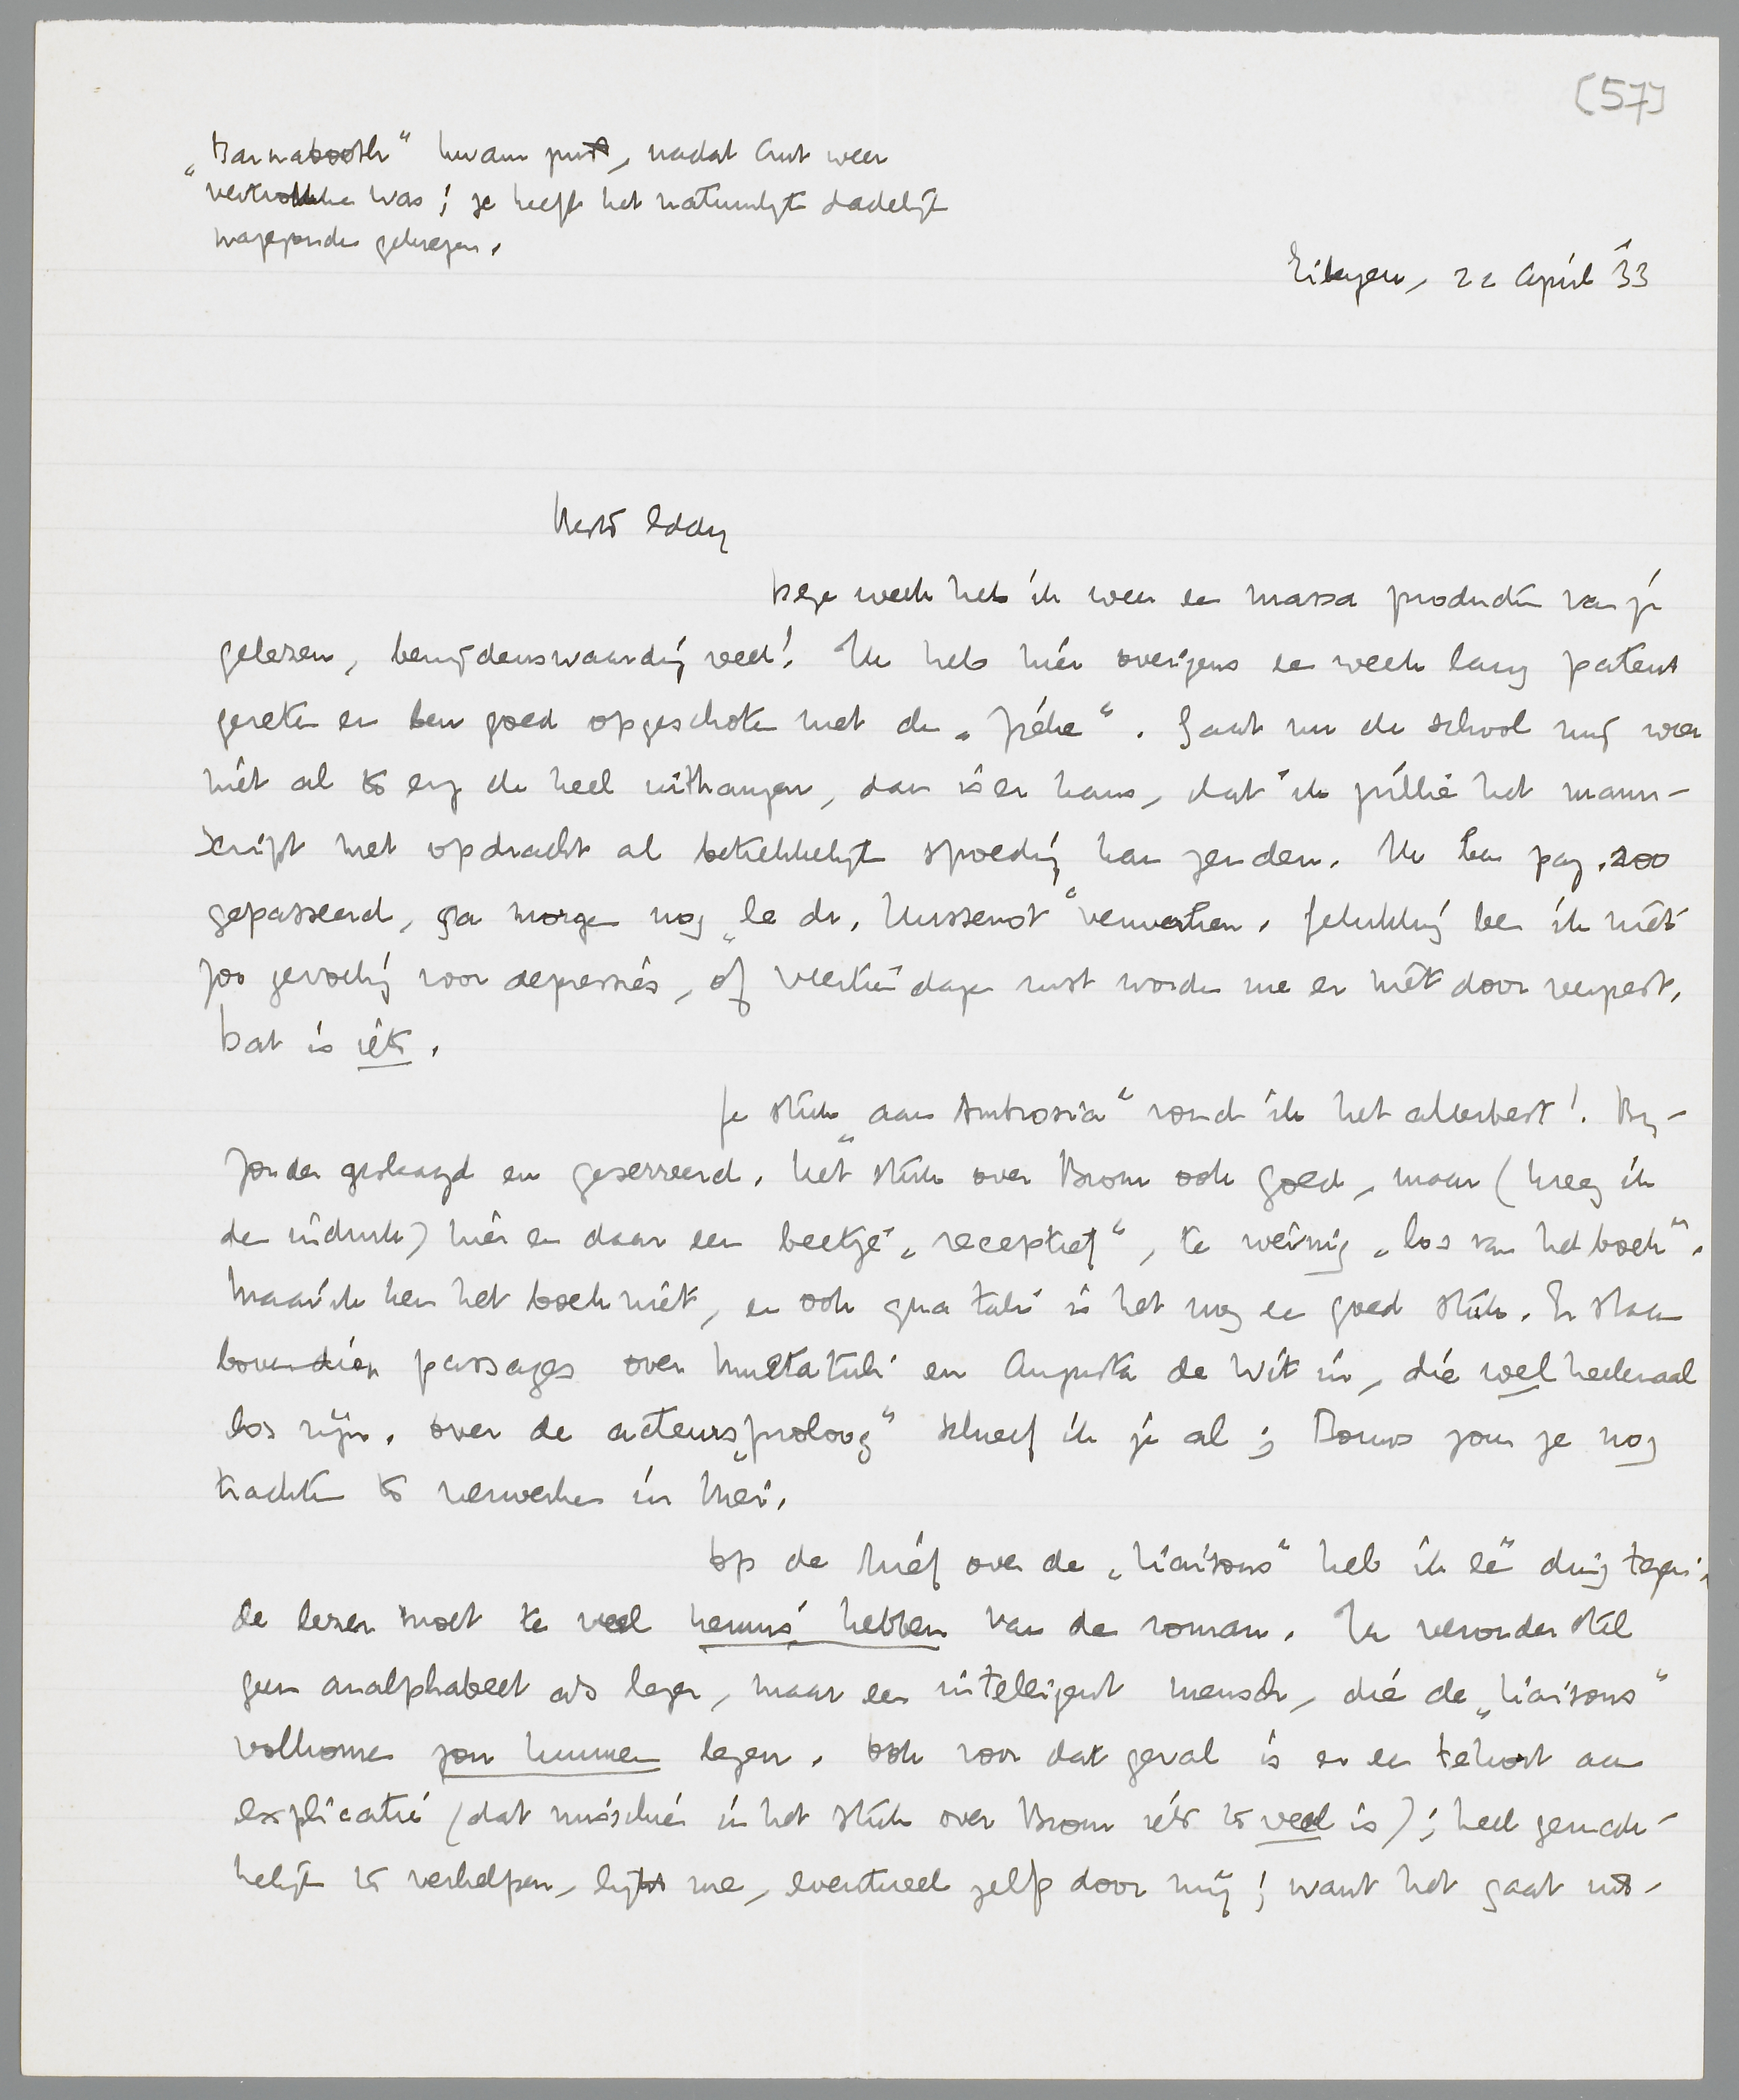 [57]
„Barnabooth" kwam juist, nadat Ant weer
vertrokken was; ze heeft het natuurlijk dadelijk
nagezonden gekregen.
Eibergen, 22 April '33
Beste Eddy
Deze week heb ik weer een massa producten van je
gelezen, benijdenswaardig veel! Ik heb hier overigens een week lang patent
gezeten en ben goed opgeschoten met de „Pédie". Gaat nu de school mij weer
niet al te erg de keel uithangen, dan is er kans, dat ik jullie het manu-
script met opdracht al betrekkelijk spoedig kan zenden. Ik ben pag. 200
gepasseerd, ga morgen nog „le dr. Kussenot" verwerken. Gelukkig ben ik niet
zoo gevoelig voor depressies, of veertien dagen rust worden me er niet door verpest.
Dat is iets.
Je stuk „aan Ambrosia" vond ik het allerbest! Bij-
zonder geslaagd en geserreerd. Het stuk over Brom ook goed, maar (kreeg ik
den indruk) hier en daar een beetje „receptief", te weinig „los van het boek".
Maar ik ken het boek niet, en ook qua talis is het nog een goed stuk. Er staan
bovendien passages over Multatuli en Augusta de Wit in, die wel heelemaal
los zijn. Over de acteurs„proloog" schreef ik je al; Bouws zou ze nog
trachten te verwerken in Mei.
Op de brief over de „Liaisons" heb ik één ding tegen:
de lezer moet te veel kennis hebben van de roman. Ik veronderstel
geen analphabeet als lezer, maar een intelligent mensch, die de „Liaisons"
volkomen zou kunnen lezen. Ook voor dat geval is er een tekort aan
explicatie (dat misschien in het stuk over Brom iets te veel is); heel gemak-
kelijk te verhelpen, lijkt me, eventueel zelfs door mij; want het gaat uit-